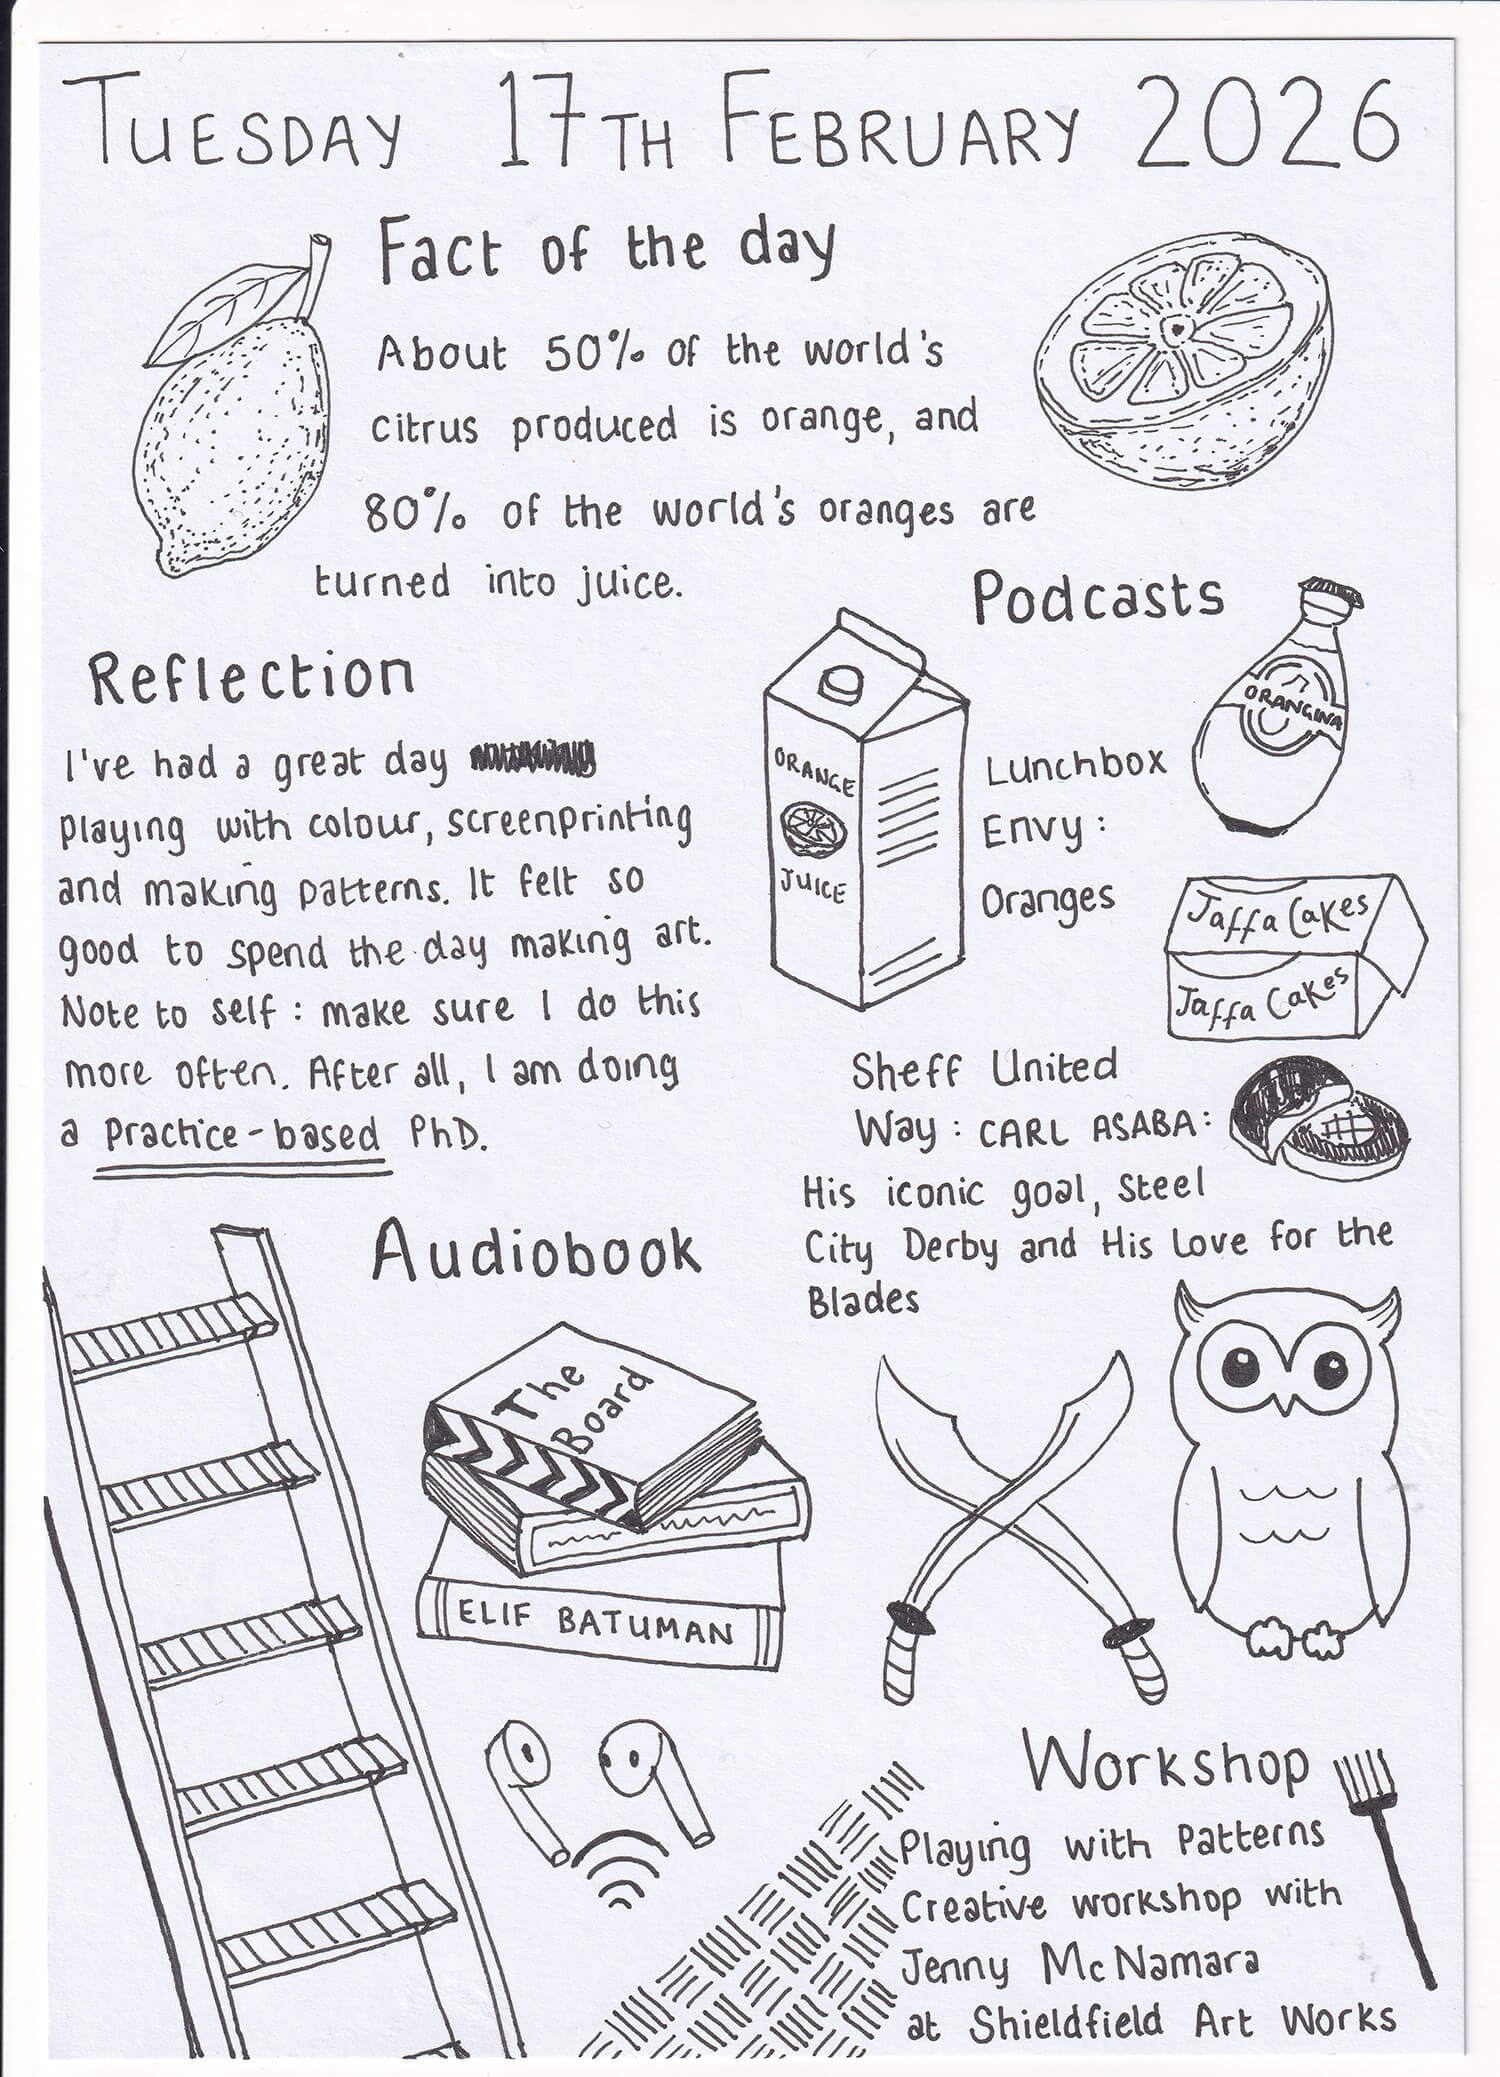 TUESDAY 17TH FEBRUARY 2026
Fact of the day
About 50% of the world's
citrus produced is orange, and
80% of the world's oranges are
turned into juice.
Reflection
I've had a great day
playing with colour, screenprinting
and making patterns. It felt so
good to spend the day making art.
Note to self: make sure I do this
more often. After all, I am doing
a practice-based PhD.
Podcasts
ORANGE
JUICE
ORANGINA
Lunchbox
Envy:
Oranges
Jaffa Cakes
Jaffa Cakes
Sheff United
Way: CARL ASABA:
His iconic goal, Steel
City Derby and His Love for the
Blades
Audiobook
The
Board
ELIF BATUMAN
Workshop
Playing with Patterns
Creative workshop with
Jenny McNamara
at Shieldfield Art Works